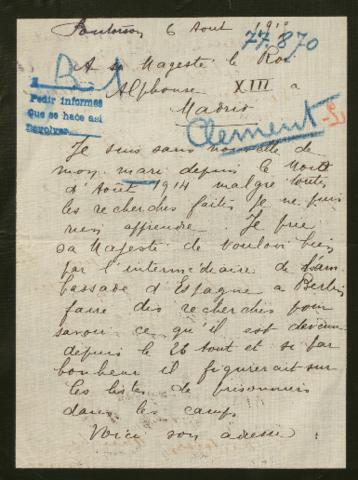 Pontorson 6 Aout 191
77.870
A sa Magesté le Roi
B-1
Alphonse XIII a
Madrid
Pedir informes
que se hace asi
Devolver
Clement
Je suis sans nouvelle de
mon mari depuis le Mois
d'Août 1914 malgré toutes
les recherches faites je ne puis
rien apprendre. Je prie
sa Magesté de vouloir bien
par l'intermédiaire de l'am
bassade d'Espagne a Berlin
faire des recherches pour
savoir ce qu'il est devenu
depuis le 26 Aout et si par
bonheur il figurerait sur
les listes de prisonniers
dans les camps
Voici son adresse :